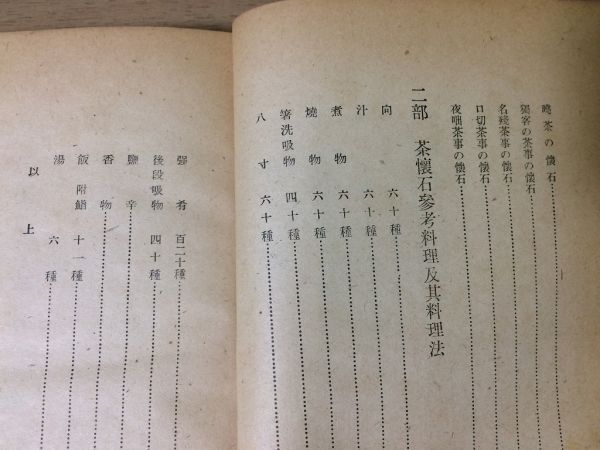 曉茶の懷石
獨客の茶事の懷石
名殘茶事の懷石
口切茶事の懷石
夜咄茶事の懷石
二部 茶懷石參考料理及其料理法
向 六十種
汁 六十種
煮物 六十種
燒物 六十種
箸洗吸物 四十種
八寸 六十種
强肴 百二十種
後段吸物 四十種
鹽辛
香物
飯附鮨 十一種
湯 六種
以上